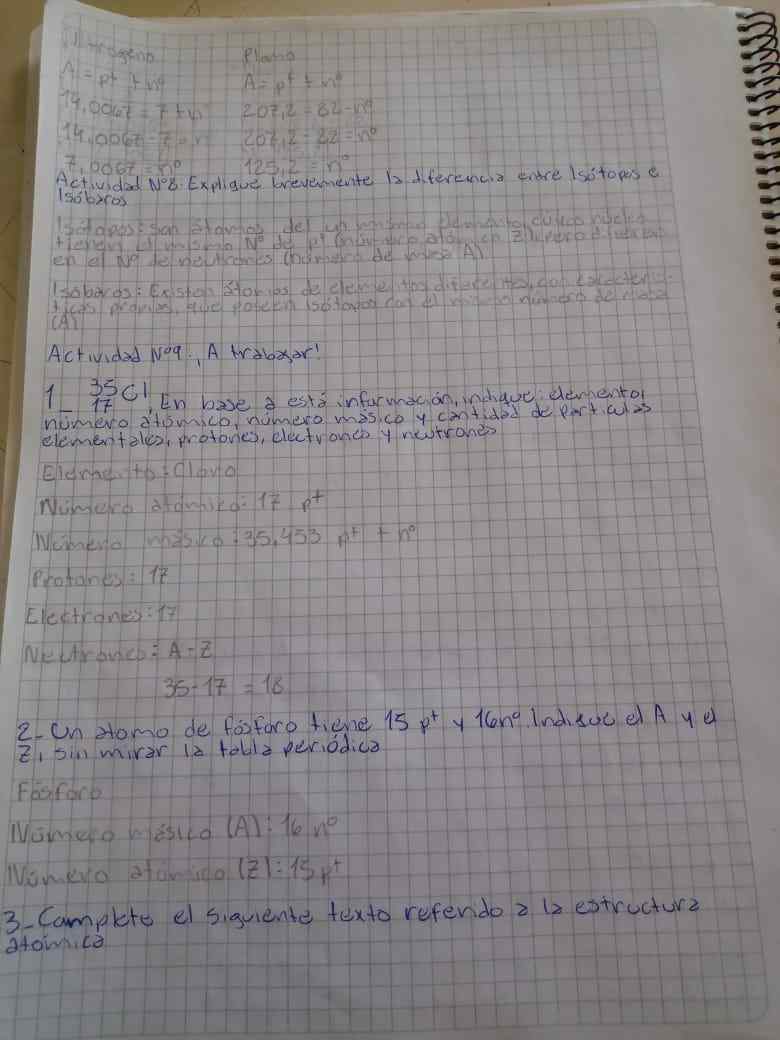 Nitrógeno Plomo
A = p+ + nº A = p+ + nº
14,0067 = 7 + n 207,2 = 82 - nº
14,0067 - 7 = n 207,2 - 82 = nº
7,0067 = nº 125,2 = nº
Actividad Nº8. Explique brevemente la diferencia entre Isótopos e
Isóbaros
Isótopos: son átomos del un mismo elemento, cuyo núcleo
tienen el mismo Nº de p+ (número atómico Z), pero difieren
en el Nº de neutrones (número de masa A)
Isóbaros: Existen átomos de elementos diferentes, con caracterís-
ticas propias, que poseen isótopos con el mismo número de masa
(A)
Actividad Nº9. ¡A trabajar!
1_ 35 17 Cl, En base a está información, indique: elemento,
número atómico, número másico y cantidad de particulas
elementales, protones, electrones y neutrones
Elemento: Cloro
Número atómico: 17 p+
Número másico: 35,453 p+ + nº
Protones: 17
Electrones: 17
Neutrones: A - Z
35 - 17 = 18
2_ Un atomo de fósforo tiene 15 p+ y 16 nº. Indique el A y el
Z, sin mirar la tabla periódica
Fósforo
Número másico (A): 16 nº
Número atómico (Z): 15 p+
3_ Complete el siguiente texto referido a la estructura
atómica